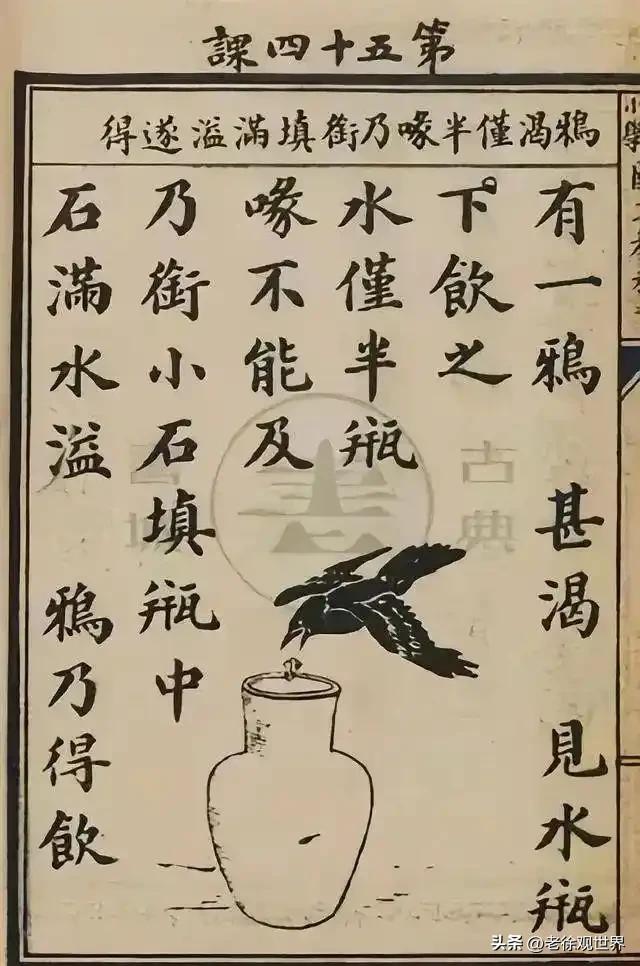 第五十四課
鴉渴僅半喙乃銜填滿溢遂得
有一鴉 甚渴 見水瓶
下飲之
水僅半瓶
喙不能及
乃銜小石填瓶中
石滿水溢 鴉乃得飲
古典
头条 @老徐观世界